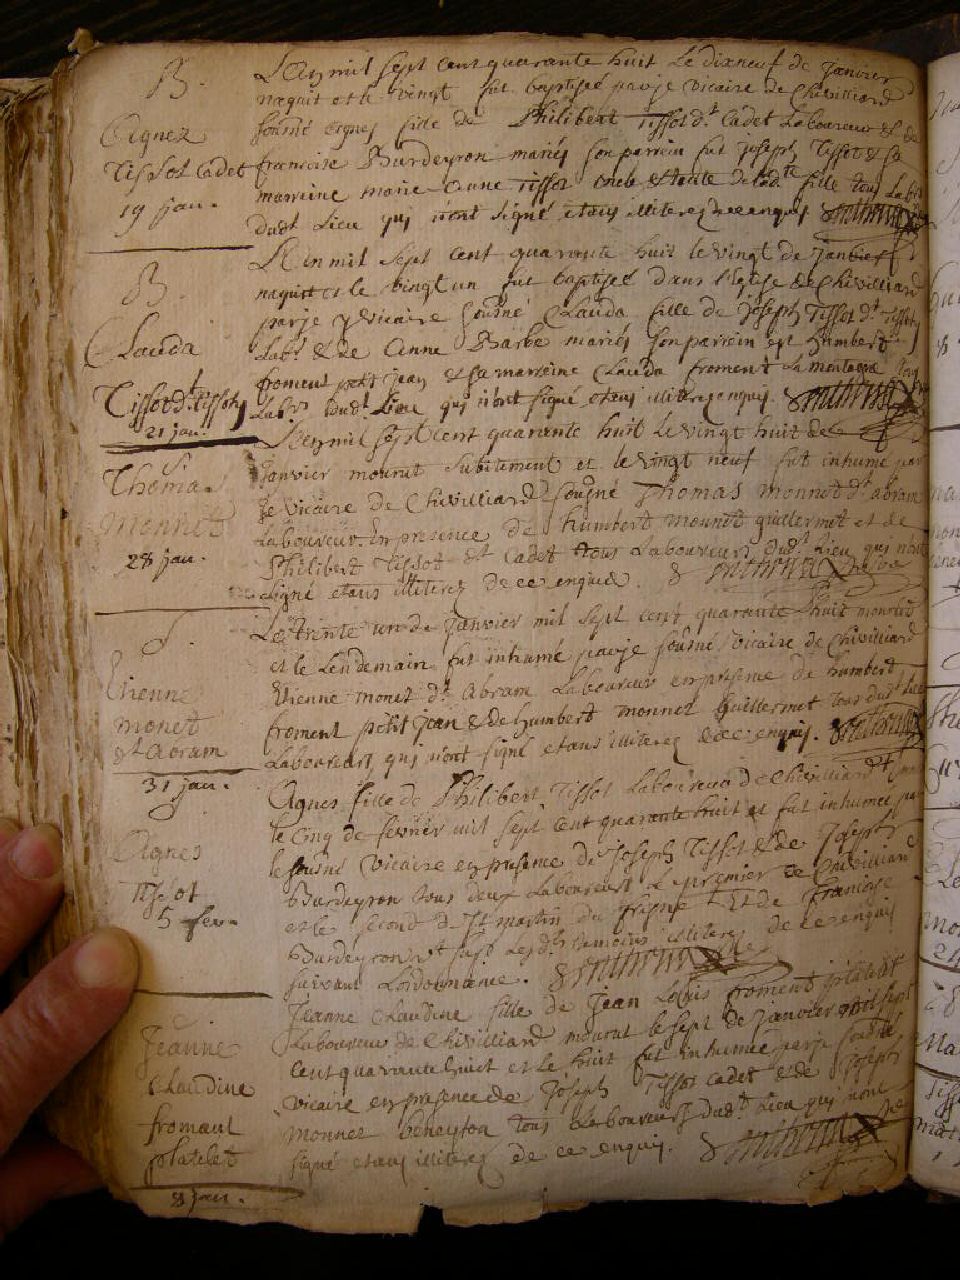 B.
Agnez
Tissot Cadet
19 jan.
L'an mil sept cent quarante huit Le dixneuf de Janvier
naquit et le vingt fut baptisée par je vicaire de Chivilliard
sousné agnes fille de Philibert Tissot dt Cadet Laboureur & de
francoise Burdeyron mariés son parrein fut joseph Tissot & sa
marreine marie anne Tissot oncle & tante de ladte fille tous
dudt Lieu qui n'ont signé etans illiterez de ce enquis
B.
Clauda
Tissot dt Tissot
21 jan.
L'an mil sept cent quarante huit le vingt de Janvier
naquit et le vingt un fut baptisée dans l'eglise de Chivilliard
par je vicaire sousné Clauda fille de joseph Tissot dt Tissot
Labr & de Anne Barbe mariés son parrein est humbert
froment petit jean & sa marreine Clauda froment La montagne
Labrs dudt Lieu qui n'ont signé etans illiterez enquis.
S
Thomas
Monnet
28 jan.
L'an mil sept cent quarante huit le vingt huit de
Janvier mourut subitement et le vingt neuf fut inhumé par
je vicaire de Chivilliard sousgné Thomas monnet dt abram
Laboureur. En presence de humbert monnet guillermet et de
Philibert Tissot dt cadet tous Laboureurs dudt Lieu qui n'ont
signé etans illiterez de ce enquis.
S.
Etienne
monet
dt Abram
31 jan.
Le trente un de Janvier mil sept cent quarante huit mourut
et le Lendemain fut inhumé par je sousné vicaire de Chivilliard
Etienne monet dt Abram Laboureur en presence de humbert
froment petit Jean & de humbert monnet Guillermet tous dudt Lieu
Laboureurs qui n'ont signé etans illiterez de ce enquis.
Agnes
Tissot
5 fev.
Agnes fille de Philibert Tissot Laboureur de Chivilliard
le cinq de fevrier mil sept cent quarante huit et fut inhumée par
le sousné vicaire en presence de Joseph Tissot & de Joseph
Burdeyron tous deux Laboureurs Le premier de Chivilliard
et le second de St martin du fresne Et de Francoise
Burdeyron Lesdts temoins illiterez de ce enquis
suivant Lordonnance.
Jeanne
Claudine
fromant
platelet
8 jan.
Jeanne Claudine fille de Jean Louis froment platelet
Laboureur de Chivilliard mourut le sept de Janvier mil sept
cent quarante huit et le huit fut inhumée par je sousné
vicaire en presence de Joseph Tissot cadet & de Joseph
monnet beneyton tous Laboureurs dudt Lieu qui n'ont
signé etans illiterez de ce enquis.